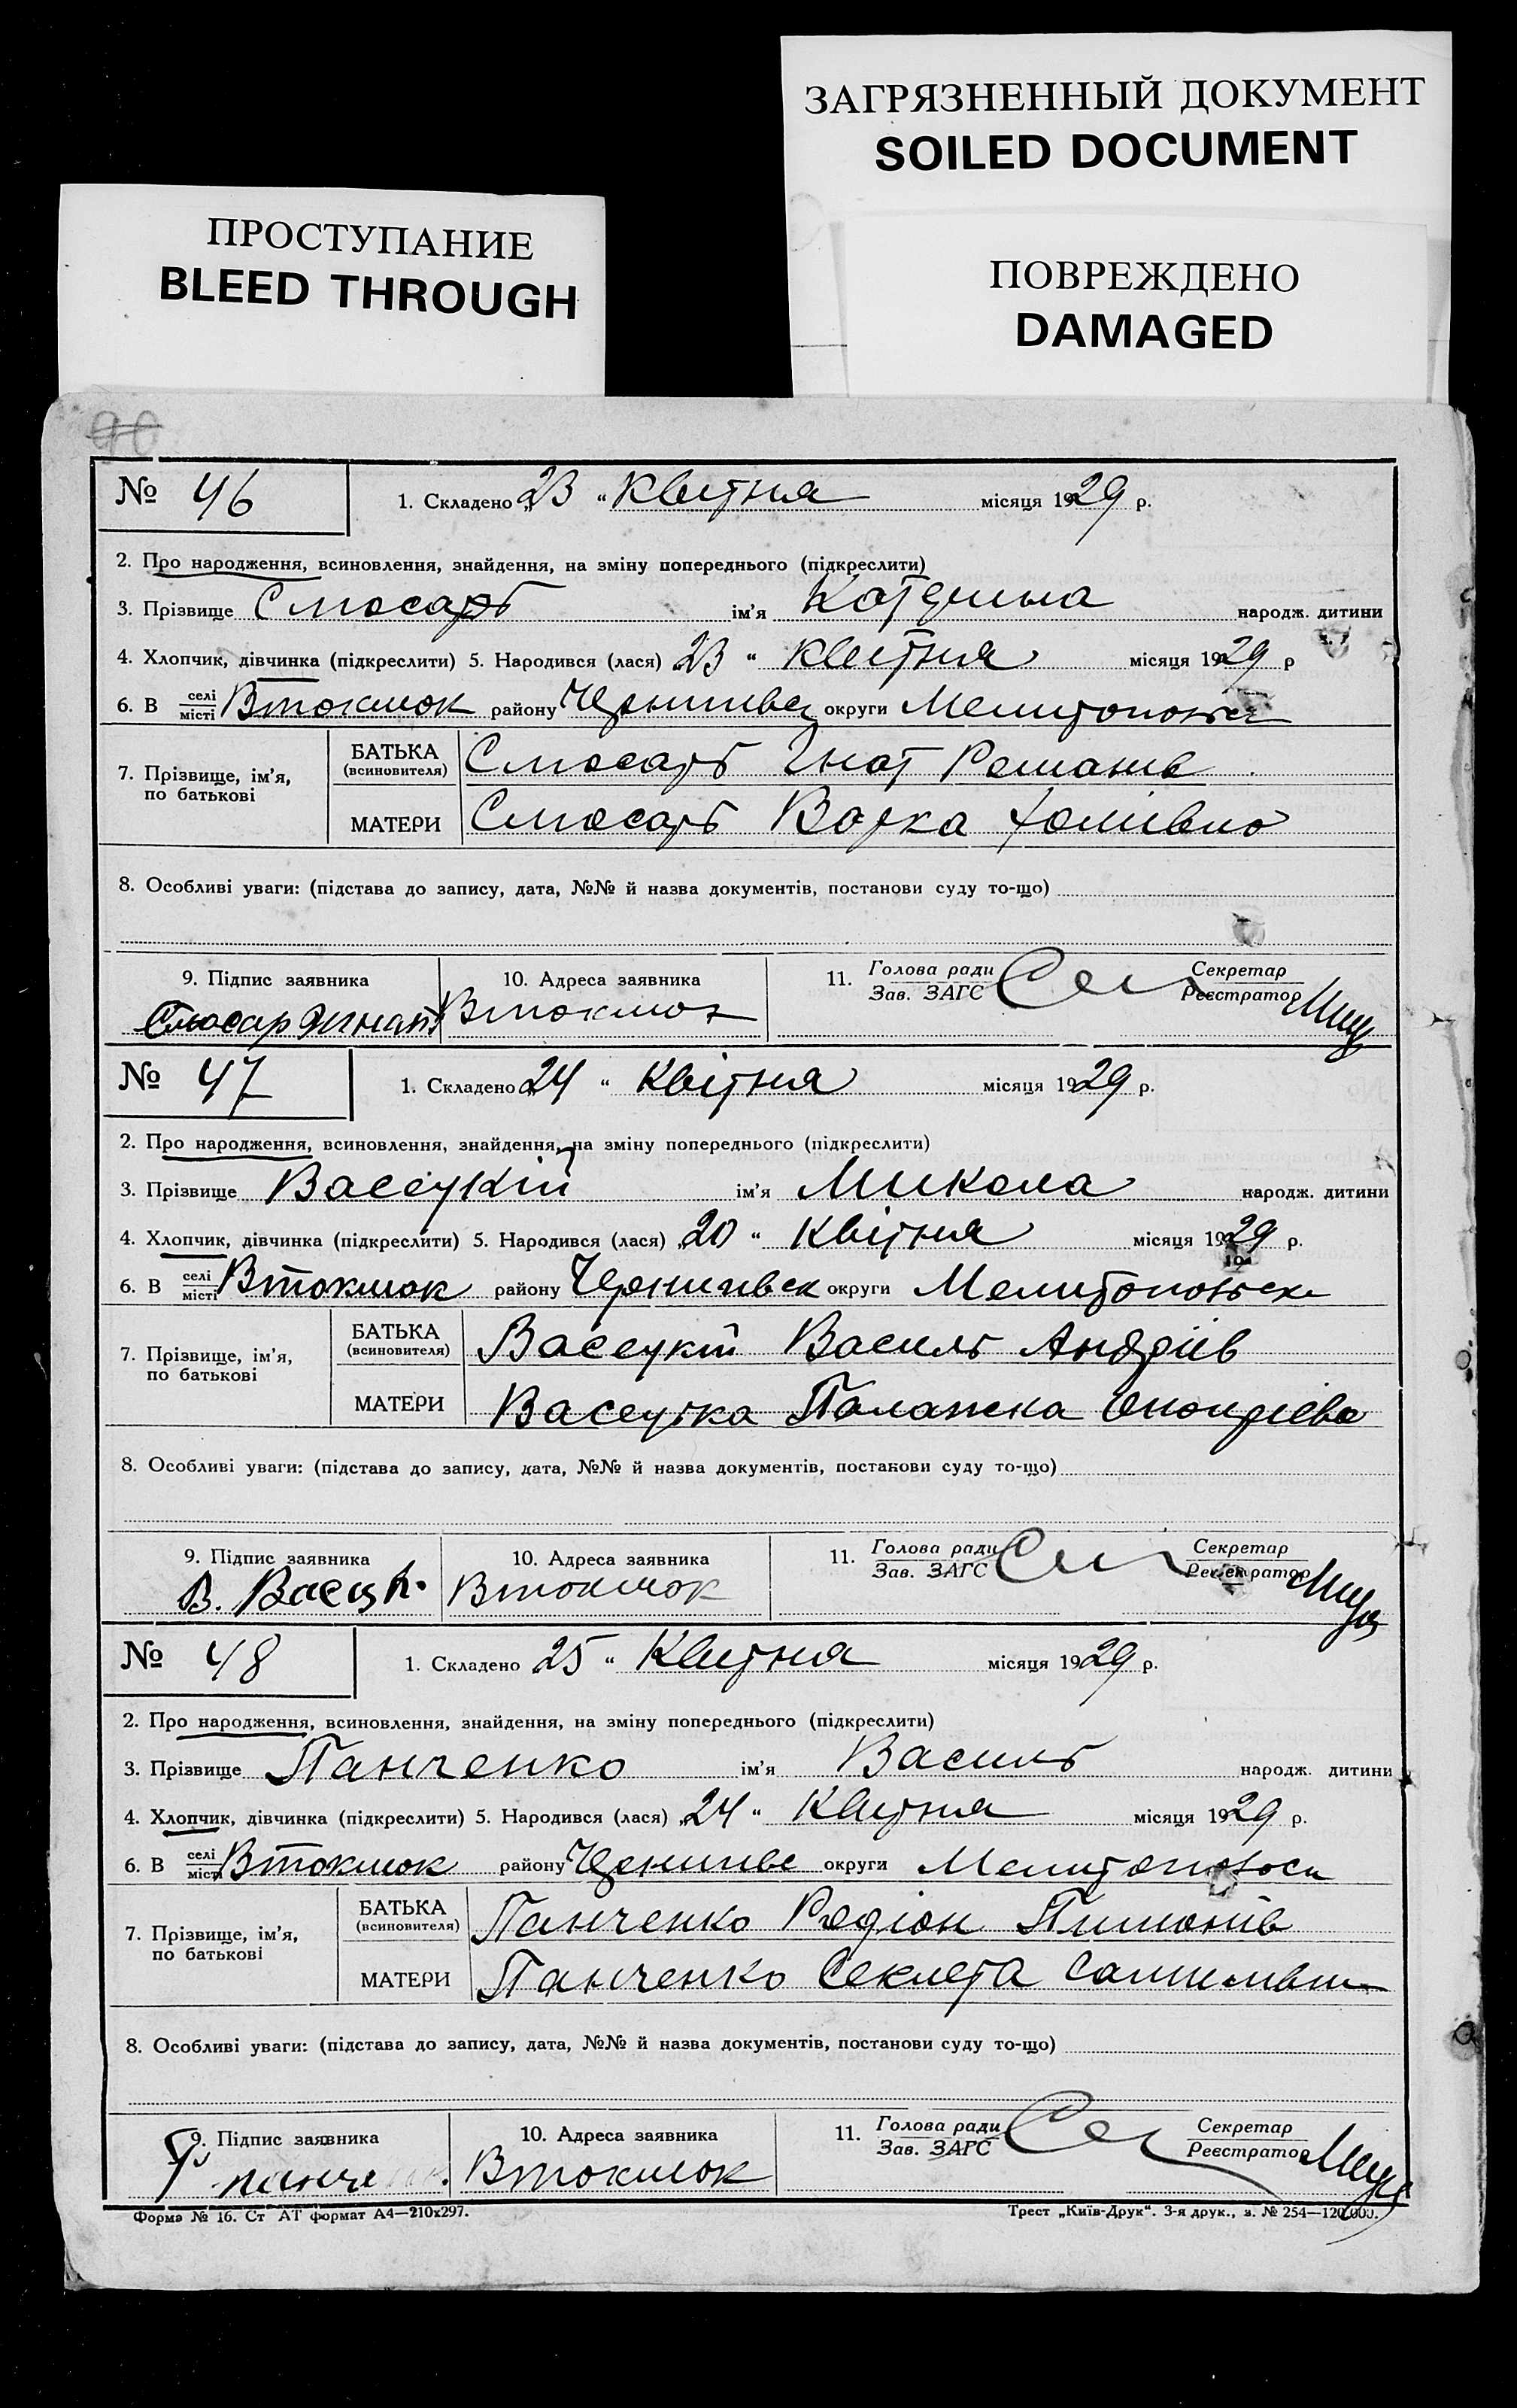 ЗАГРЯЗНЕННЫЙ ДОКУМЕНТ
SOILED DOCUMENT
ПРОСТУПАНИЕ
BLEED THROUGH
ПОВРЕЖДЕНО
DAMAGED
90
№ 46 1. Складено „23“ Квитня місяця 1929 р.
2. Про народження, всиновлення, знайдення, на зміну попереднього (підкреслити)
3. Прізвище Слюсарь ім'я Катерина народж. дитини
4. Хлопчик, дівчинка (підкреслити) 5. Народився (лася) „23“ Квитня місяця 1929 р
6. В селі/місті Втокмок району Чернигивск округи Мелитопольск
7. Прізвище, ім'я, по батькові БАТЬКА (всиновителя) Слюсарь Гнат Романів
МАТЕРИ Слюсарь Варка Хомівна
8. Особливі уваги: (підстава до запису, дата, №№ й назва документів, постанови суду то-що)
9. Підпис заявника 10. Адреса заявника 11. Голова ради/Зав. ЗАГС Секретар/Реєстратор
Слюсар Игнат Втокмок
№ 47 1. Складено „24“ Квітня місяця 1929 р.
2. Про народження, всиновлення, знайдення, на зміну попереднього (підкреслити)
3. Прізвище Васецкій ім'я Микола народж. дитини
4. Хлопчик, дівчинка (підкреслити) 5. Народився (лася) „20“ Квітня місяця 1929 р.
6. В селі/місті Втокмок району Чернигивск округи Мелитопольск
7. Прізвище, ім'я, по батькові БАТЬКА (всиновителя) Васецкий Василь Андріїв
МАТЕРИ Васецка Палажка
8. Особливі уваги: (підстава до запису, дата, №№ й назва документів, постанови суду то-що)
9. Підпис заявника 10. Адреса заявника 11. Голова ради/Зав. ЗАГС Секретар/Реєстратор
В. Васецк. Втокмок
№ 48 1. Складено „25“ Квитня місяця 1929 р.
2. Про народження, всиновлення, знайдення, на зміну попереднього (підкреслити)
3. Прізвище Панченко ім'я Василь народж. дитини
4. Хлопчик, дівчинка (підкреслити) 5. Народився (лася) „24“ Квитня місяця 1929 р.
6. В селі/місті Втокмок району Чернигивс округи Мелитопольск
7. Прізвище, ім'я, по батькові БАТЬКА (всиновителя) Панченко Родіон Пимонів
МАТЕРИ Панченко Секлета
8. Особливі уваги: (підстава до запису, дата, №№ й назва документів, постанови суду то-що)
9. Підпис заявника 10. Адреса заявника 11. Голова ради/Зав. ЗАГС Секретар/Реєстратор
Втокмок
Форма № 16. Ст АТ формат А4—210х297. Трест „Київ-Друк“. 3-я друк., з. № 254—120.000.